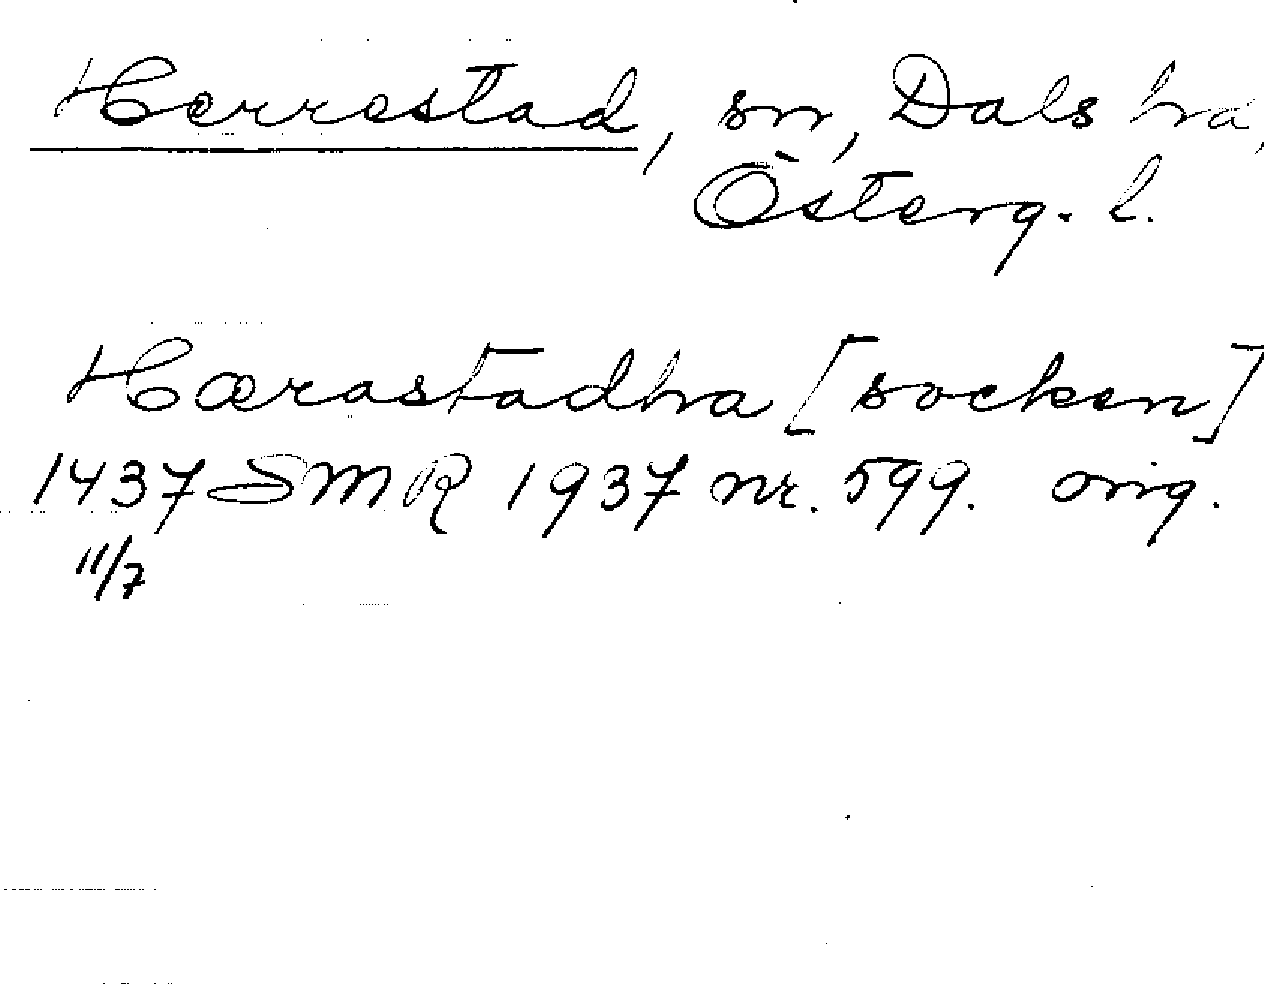 Herrestad, sn, Dals hd,
Österg. l.
Hærastadha [socken]
1437 SMR 1937 nr. 599. orig.
11/7